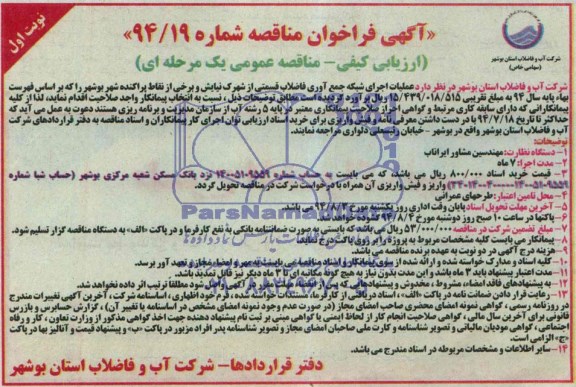 نوبت اول
«آگهی فراخوان مناقصه شماره ۹۴/۱۹»
(ارزیابی کیفی- مناقصه عمومی یک مرحله ای)
شرکت آب و فاضلاب استان بوشهر
(سهامی خاص)
شرکت آب و فاضلاب استان بوشهر در نظر دارد عملیات اجرای شبکه جمع آوری فاضلاب قسمتی از شهرک نیایش و برخی از نقاط پراکنده شهر بوشهر را که بر اساس فهرست
بهای پایه سال ۹۴ به مبلغ تقریبی ۱۵/۴۳۹/۰۱۸/۵۱۵ ریال برآورد گردیده است مطابق توضیحات ذیل، نسبت به انتخاب پیمانکار واجد صلاحیت اقدام نماید، لذا از کلیه
پیمانکارانی که دارای سابقه کاری مرتبط و گواهی احراز صلاحیت پیمانکاری معتبر با حداقل پایه ۵ رشته آب از سازمان مدیریت و برنامه ریزی هستند دعوت به عمل می آید که
حداکثر تا تاریخ ۹۴/۷/۱۸ با در دست داشتن معرفی نامه و فیش واریزی برای خرید اسناد ارزیابی توان اجرای کار پیمانکاران و اسناد مناقصه به دفتر قراردادهای شرکت
آب و فاضلاب استان بوشهر واقع در بوشهر - خیابان رئیسعلی دلواری مراجعه نمایند.
توضیحات:
۱- دستگاه نظارت: مهندسین مشاور ایراناب
۲- مدت اجرا: ۷ ماه
۳- قیمت خرید اسناد ۸۰۰/۰۰۰ ریال می باشد، که می بایست به حساب شماره ۱۴۰۰۵۱۰۹۵۵۹ نزد بانک مسکن شعبه مرکزی بوشهر (حساب شبا شماره
واریز و فیش واریزی آن همراه با درخواست شرکت در مناقصه تحویل گردد.
۴- محل تامین اعتبار: طرحهای عمرانی
۵- آخرین مهلت تحویل اسناد پایان وقت اداری روز یکشنبه مورخ ۹۴/۸/۳ می باشد.
۶- پاکتها در ساعت ۱۰ صبح روز دوشنبه مورخ ۹۴/۸/۴ گشوده خواهد شد.
۷- مبلغ تضمین شرکت در مناقصه ۵۳/۰۰۰/۰۰۰ ریال می باشد که بایستی به صورت ضمانتنامه بانکی به نفع کارفرما و در پاکت «الف» به دستگاه مناقصه گزار تسلیم شود.
۸- پیمانکار می بایست کلیه مشخصات مربوط به پروژه را بر روی پاکت درج نماید.
۹- هزینه درج آگهی در دو نوبت به عهده برنده مناقصه می باشد.
۱۰- کلیه اسناد و مدارک خواسته شده و ارائه شده از سوی پیمانکار و اسناد مناقصه می بایست به مهر و امضاء مجاز و تعهد آور برسد.
۱۱- مدت اعتبار پیشنهاد باید ۳ ماه باشد و این مدت بدون نیاز به هیچ گونه مکاتبه ای تا ۳ ماه دیگر نیز قابل تمدید باشد.
۱۲- به پیشنهادهای فاقد امضاء، مشروط، مخدوش و پیشنهادهایی که پس از مدت مقرر در فراخوان واصل شود مطلقا ترتیب اثر داده نخواهد شد.
۱۳- رعایت قرار دادن ضمانت نامه در پاکت «الف»، اسناد دریافتی از کارفرما، مستندات خواسته شده، فرم خود اظهاری، اساسنامه شرکت، آخرین آگهی تغییرات مندرج
در روزنامه رسمی، گواهی نمونه امضای محضری صاحب امضای مجاز (در صورت عدم وجود نمونه امضای مشخص در اساسنامه یا تغییر آن)، گزارش حسابرس و بازرس
قانونی برای آخرین سال مالی، گواهی صلاحیت انجام کار از لحاظ ایمنی یا گواهی مبنی بر ثبت نام پیشنهاد دهنده جهت اخذ گواهی مذکور از وزارت تعاون، کار و رفاه
اجتماعی، گواهی مودیان مالیاتی و تصویر شناسنامه و کارت ملی صاحبان امضای مجاز و تصویر شناسنامه پدر افراد مزبور در پاکت «ب» و پیشنهاد قیمت و آنالیز بها در پاکت
«ج» الزامی است.
۱۴- سایر اطلاعات و مشخصات مربوطه در اسناد مندرج می باشد.
دفتر قراردادها - شرکت آب و فاضلاب استان بوشهر
ParsNamadData